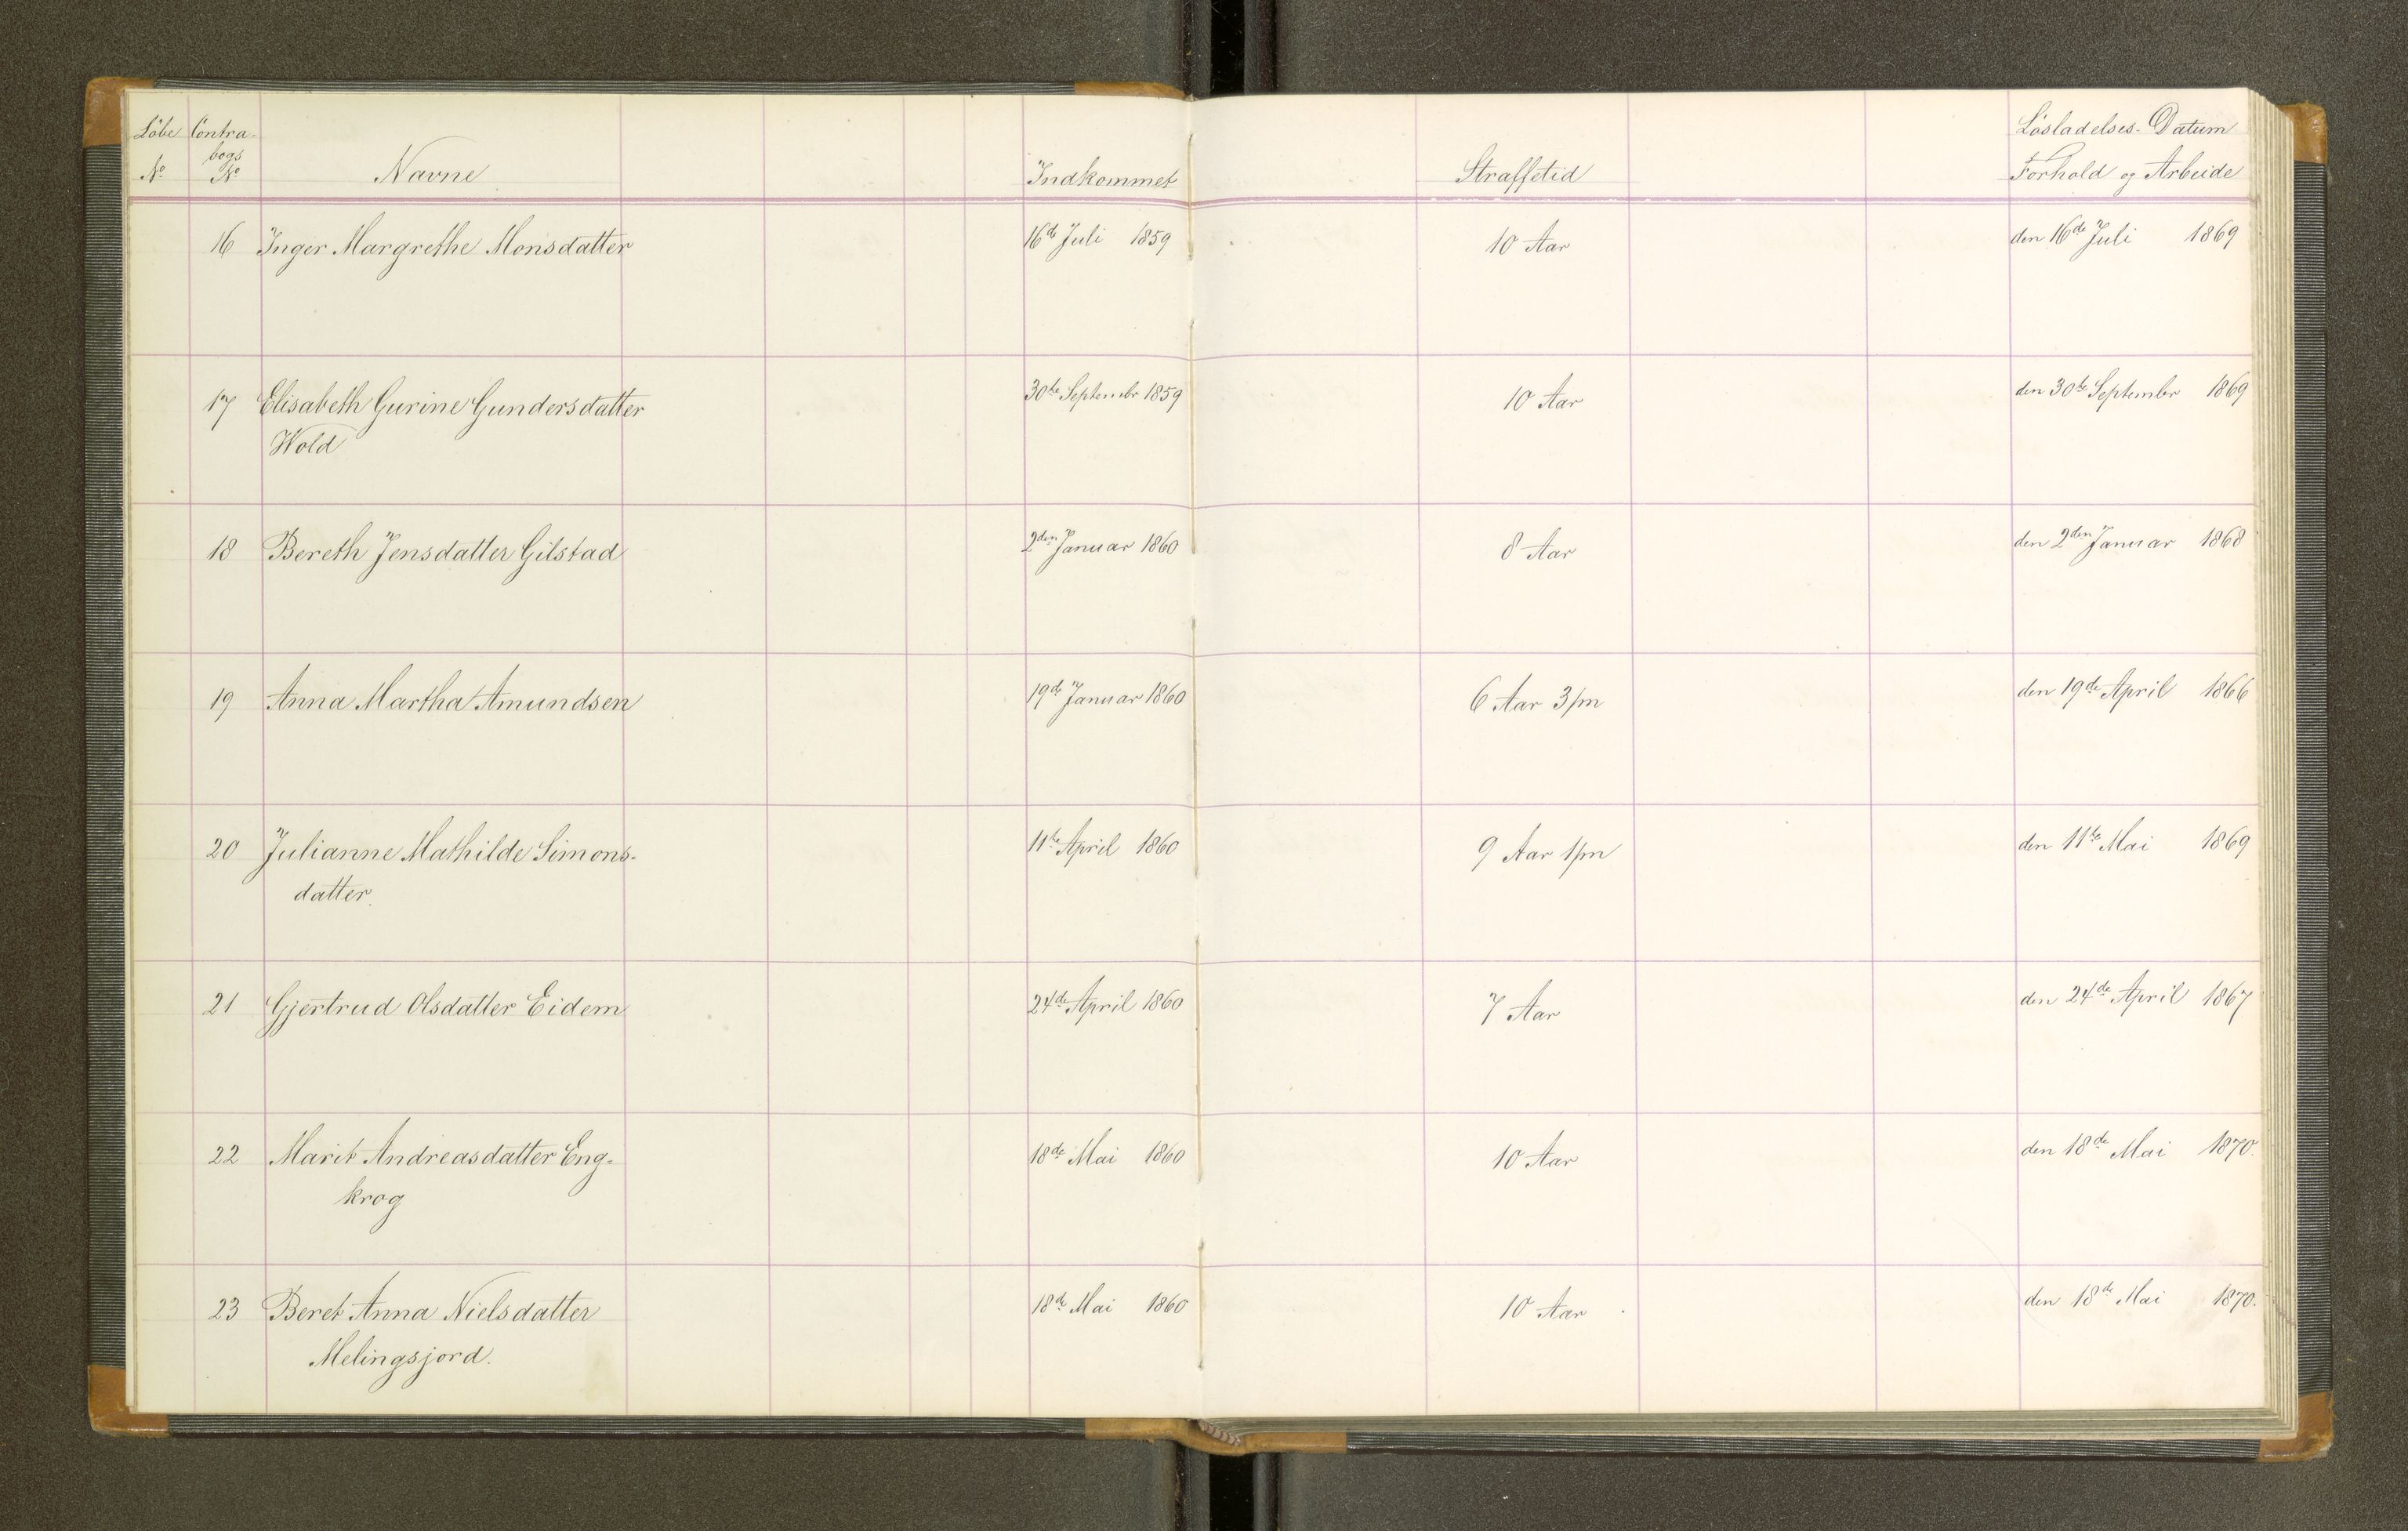 Løbe Contra- Løsladelses-Datum
bogs
No No Navne Indkommet Straffetid Forhold og Arbeide
16 Inger Margrethe Monsdatter 16de Juli 1859 10 Aar den 16de Juli 1869
17 Elisabeth Gurine Gundersdatter 30te Septembr 1859 10 Aar den 30te Septembr 1869
Wold
18 Bereth Jensdatter Gilstad 2den Januar 1860 8 Aar den 2den Januar 1868
19 Anna Martha Amundsen 19de Januar 1860 6 Aar 3/m den 19de April 1866
20 Julianne Mathilde Simons- 11te April 1860 9 Aar 1/m den 11te Mai 1869
datter.
21 Gjertrud Olsdatter Eidem 24de April 1860 7 Aar den 24de April 1867
22 Marit Andreasdatter Eng- 18de Mai 1860 10 Aar den 18de Mai 1870.
krog
23 Beret Anna Nielsdatter 18de Mai 1860 10 Aar den 18de Mai 1870.
Melingsjord.